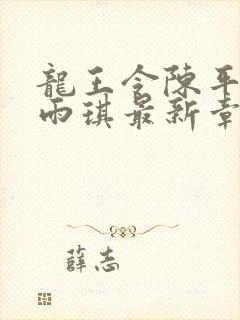 龍王令陳平
雨琪最新章
薛志